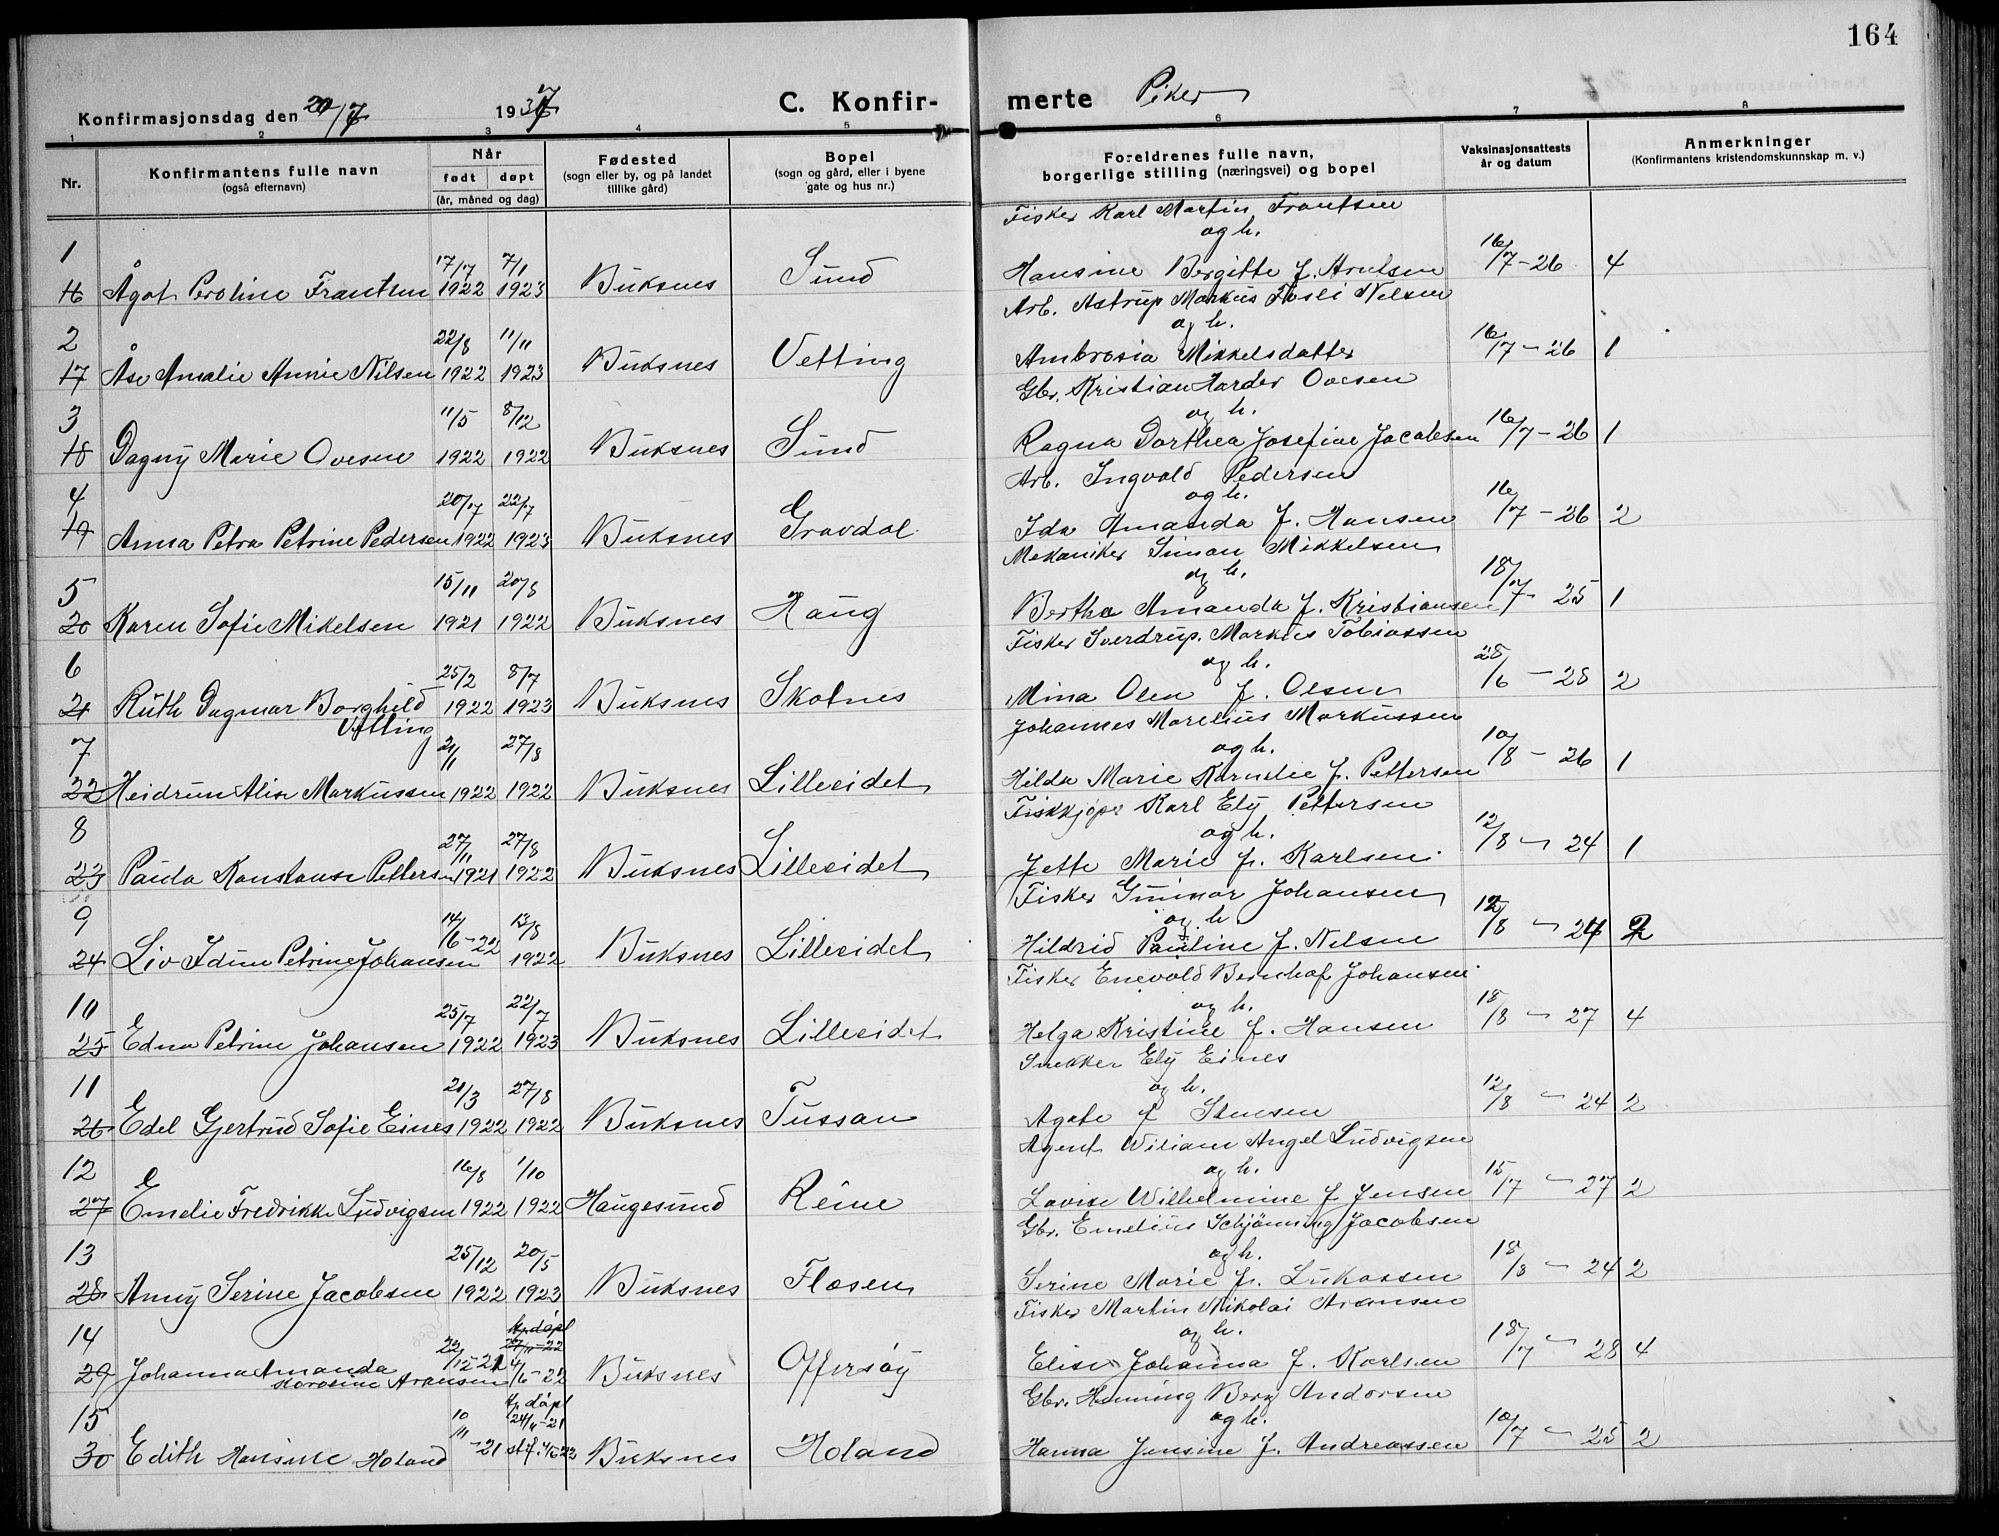 164
Konfirmasjonsdag den 20/7 1937 C. Konfir- merte Piker
1 2 3 4 5 6 7 8
Nr. Konfirmantens fulle navn (også efternavn) Når født døpt (år, måned og dag) Fødested (sogn eller by, og på landet tillike gård) Bopel (sogn og gård, eller i byene gate og hus nr.) Foreldrenes fulle navn, borgerlige stilling (næringsvei) og bopel Vaksinasjonsattests år og datum Anmerkninger (Konfirmantens kristendomskunnskap m. v.)
Fisker Karl Martin Frantsen
og h.
1 17/7 7/1
16 Ågot Peroline Frantsen 1922 1923 Buksnes Sund Hansine Bergitte f. Arntsen 16/7-26 4
Arb. Astrup Markus Nilsen
og h.
2 22/8 11/11
17 Åse Amalie Annie Nilsen 1922 1923 Buksnes Vetting Ambrosia Mikkelsdatter 16/7-26 1
Gbr. Kristian Harder Ovesen
og h.
3 11/5 8/12
18 Dagny Marie Ovesen 1922 1922 Buksnes Sund Ragna Dorthea Josefine Jacobsen 16/7-26 1
Arb. Ingvald Pedersen
og h.
4 20/7 22/7
19 Anna Petra Petrine Pedersen 1922 1923 Buksnes Gravdal Ida Amanda f. Hansen 16/7-26 2
Mekaniker Simon Mikkelsen
og h.
5 15/11 20/8
20 Karen Sofie Mikelsen 1921 1922 Buksnes Haug Bertha Amanda f. Kristiansen 18/7-25 1
Fisker Sverdrup Markus Tobiassen
og h.
6 25/2 8/7
21 Ruth Dagmar Borghild Vetting 1922 1923 Buksnes Skotnes Mina Olea f. Olsen 28/6-28 2
Johannes Marelius Markussen
og h.
7 21/1 27/8
22 Heidrun Alise Markussen 1922 1922 Buksnes Lilleeidet Hilda Marie Kornelie f. Pettersen 10/8-26 1
Fiskkjøper Karl Ely Pettersen
og h.
8 27/11 27/8
23 Paula Konstanse Pettersen 1921 1922 Buksnes Lilleeidet Jette Marie f. Karlsen 12/8-24 1
Fisker Gunnar Johansen
og h
9 14/6-22 13/8
24 Liv Idun Petrine Johansen 1922 Buksnes Lilleeidet Hildrid Pauline f. Nilsen 12/8-24 2
Fisker Enevold Bernhof Johansen
og h.
10 25/7 22/7
25 Edna Petrine Johansen 1922 1923 Buksnes Lilleeidet Helga Kristine f. Hansen 18/8-27 4
Snekker Ely Eines
og h.
11 21/3 27/8
26 Edel Gjertrud Sofie Eines 1922 1922 Buksnes Tussan Agate f Stensen 12/8-24 2
Agent Wiliam Angel Ludvigsen
og h.
12 16/8 1/10
27 Emelie Fredrikke Ludvigsen 1922 1922 Haugesund Reine Lovise Wilhelmine f Jensen 15/7-27 2
Gbr. Emelius Schjønning Jacobsen
og h.
13 25/12 20/5
28 Anny Serine Jacobsen 1922 1923 Buksnes Flosen Serine Marie f. Lukassen 18/8-24 2
Fisker Martin Nikolai Aronsen
og h.
14 22/12-21 hj. døpt
29 Johanna Amanda Aronsen 4/6-22 Buksnes Offersøy Elise Johanna f. Karlsen 18/7-28 4
Gbr. Henning Berg Andorsen
og h.
15 10/11-21 hj. døpt
30 Edith Hansine Holand Buksnes Holand Hanna Jensine f. Andreassen 10/7-25 2